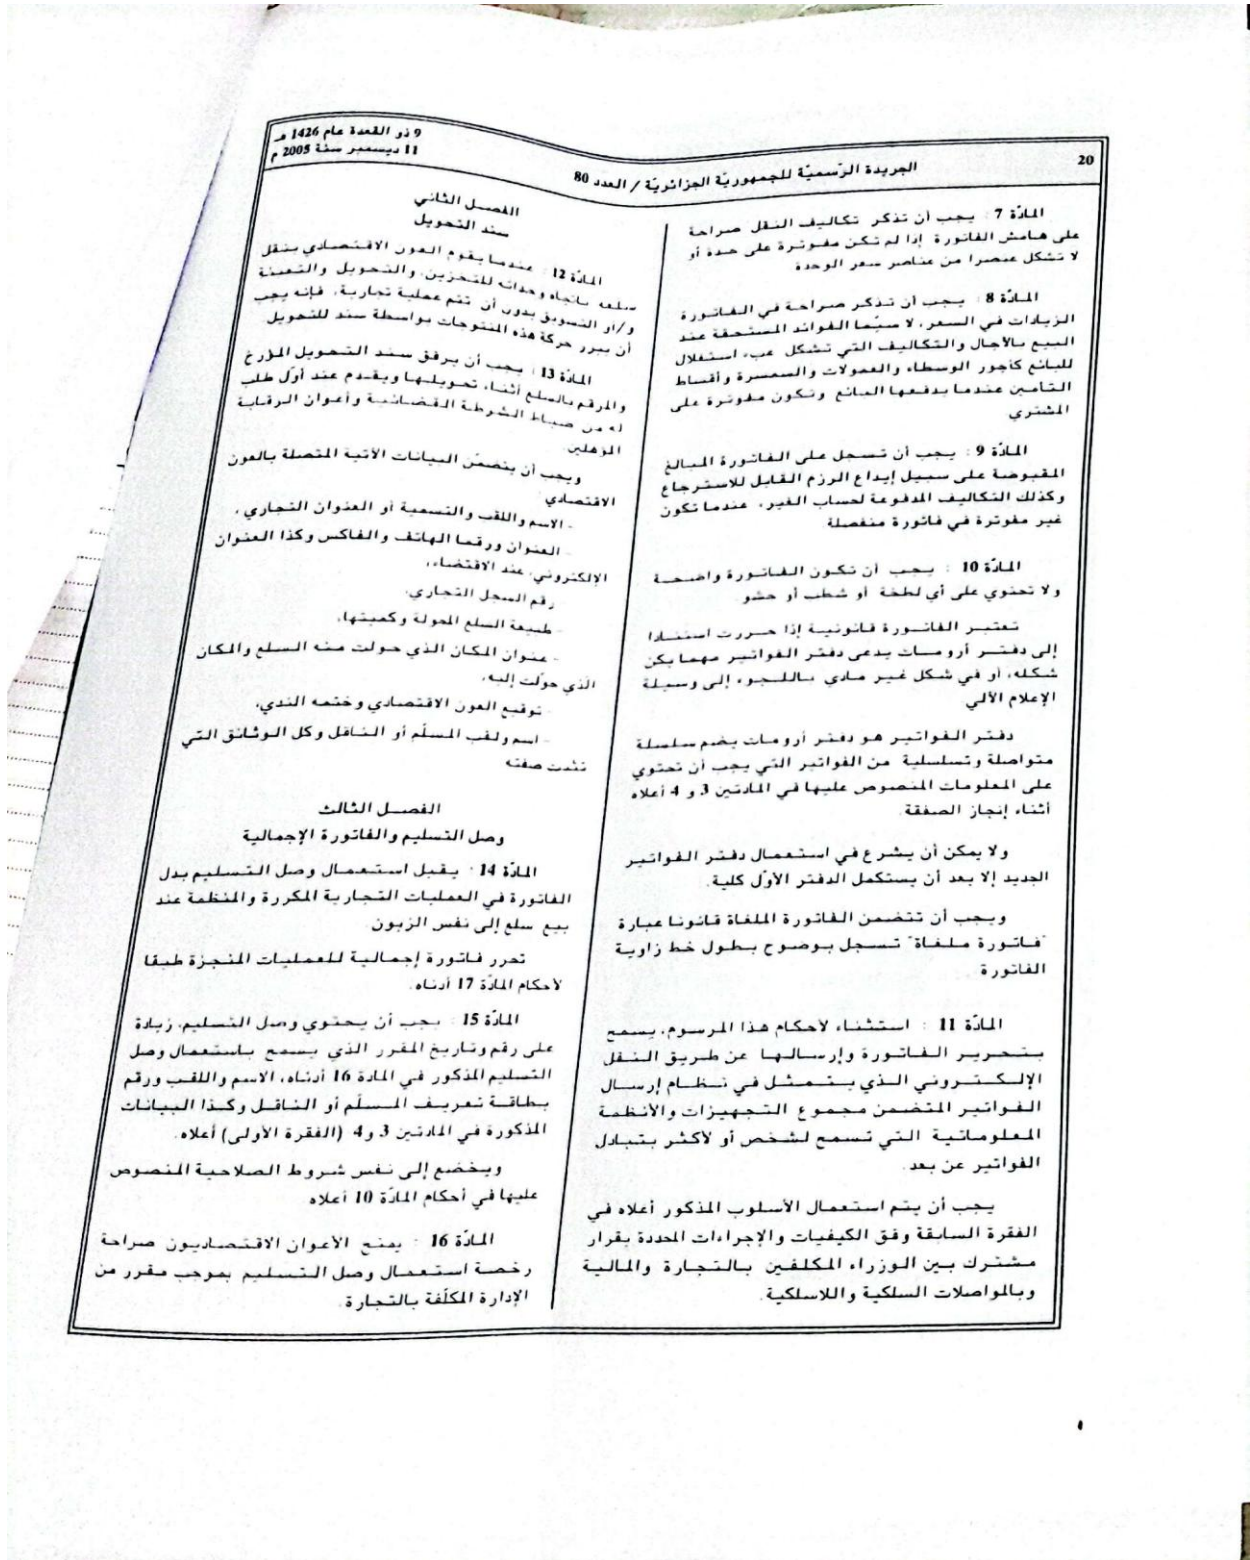 20
الجريدة الرّسميّة للجمهوريّة الجزائريّة / العدد 80
9 ذو القعدة عام 1426 هـ
11 ديسمبر سنة 2005 م
المادّة 7 : يجب أن تذكر تكاليف النقل صراحة
على هامش الفاتورة إذا لم تكن مفوترة على حدة أو
لا تشكل عنصرا من عناصر سعر الوحدة.
المادّة 8 : يجب أن تذكر صراحة في الفاتورة
الزيادات في السعر، لا سيّما الفوائد المستحقة عند
البيع بالآجال والتكاليف التي تشكل عبء استغلال
للبائع كأجور الوسطاء والعمولات والسمسرة وأقساط
التأمين عندما يدفعها البائع وتكون مفوترة على
المشتري
المادّة 9 : يجب أن تسجل على الفاتورة المبالغ
المقبوضة على سبيل إيداع الرزم القابل للاسترجاع
وكذلك التكاليف المدفوعة لحساب الغير، عندما تكون
غير مفوترة في فاتورة منفصلة
المادّة 10 : يجب أن تكون الفاتورة واضحة
ولا تحتوي على أي لطخة أو شطب أو حشو.
تعتبر الفاتورة قانونية إذا حررت استنادا
إلى دفتر أرومات يدعى دفتر الفواتير مهما يكن
شكله، أو في شكل غير مادي باللجوء إلى وسيلة
الإعلام الآلي
دفتر الفواتير هو دفتر أرومات يضم سلسلة
متواصلة وتسلسلية من الفواتير التي يجب أن تحتوي
على المعلومات المنصوص عليها في المادتين 3 و 4 أعلاه
أثناء إنجاز الصفقة.
ولا يمكن أن يشرع في استعمال دفتر الفواتير
الجديد إلا بعد أن يستكمل الدفتر الأوّل كلية.
ويجب أن تتضمن الفاتورة الملغاة قانونا عبارة
"فاتورة ملغاة" تسجل بوضوح بطول خط زاوية
الفاتورة
المادّة 11 : استثناء لأحكام هذا المرسوم، يسمح
بتحرير الفاتورة وإرسالها عن طريق النقل
الإلكتروني الذي يتمثل في نظام إرسال
الفواتير المتضمن مجموع التجهيزات والأنظمة
المعلوماتية التي تسمح لشخص أو لأكثر بتبادل
الفواتير عن بعد.
يجب أن يتم استعمال الأسلوب المذكور أعلاه في
الفقرة السابقة وفق الكيفيات والإجراءات المحددة بقرار
مشترك بين الوزراء المكلفين بالتجارة والمالية
وبالمواصلات السلكية واللاسلكية.
الفصل الثاني
سند التحويل
المادّة 12 : عندما يقوم العون الاقتصادي بنقل
سلعه باتجاه وحداته للتخزين، والتحويل والتعبئة
و/أو التسويق بدون أن تتم عملية تجارية، فإنه يجب
أن يبرر حركة هذه المنتوجات بواسطة سند للتحويل
المادّة 13 : يجب أن يرفق سند التحويل المؤرخ
والمرقم بالسلع أثناء تحويلها ويقدم عند أوّل طلب
له من ضباط الشرطة القضائية وأعوان الرقابة
المؤهلين.
ويجب أن يتضمّن البيانات الآتية المتصلة بالعون
الاقتصادي
- الاسم واللقب والتسمية أو العنوان التجاري،
- العنوان ورقما الهاتف والفاكس وكذا العنوان
الإلكتروني، عند الاقتضاء،
رقم السجل التجاري،
- طبيعة السلع المحولة وكميتها،
- عنوان المكان الذي حولت منه السلع والمكان
الذي حوّلت إليه،
- توقيع العون الاقتصادي وختمه الندي،
- اسم ولقب المسلّم أو الناقل وكل الوثائق التي
تثبت صفته
الفصل الثالث
وصل التسليم والفاتورة الإجمالية
المادّة 14 : يقبل استعمال وصل التسليم بدل
الفاتورة في العمليات التجارية المكررة والمنظمة عند
بيع سلع إلى نفس الزبون
تحرر فاتورة إجمالية للعمليات المنجزة طبقا
لأحكام المادّة 17 أدناه.
المادّة 15 : يجب أن يحتوي وصل التسليم، زيادة
على رقم وتاريخ المقرر الذي يسمح باستعمال وصل
التسليم المذكور في المادة 16 أدناه، الاسم واللقب ورقم
بطاقة تعريف المسلّم أو الناقل وكذا البيانات
المذكورة في المادتين 3 و4 (الفقرة الأولى) أعلاه.
ويخضع إلى نفس شروط الصلاحية المنصوص
عليها في أحكام المادّة 10 أعلاه
المادّة 16 : يمنح الأعوان الاقتصاديون صراحة
رخصة استعمال وصل التسليم بموجب مقرر من
الإدارة المكلّفة بالتجارة.